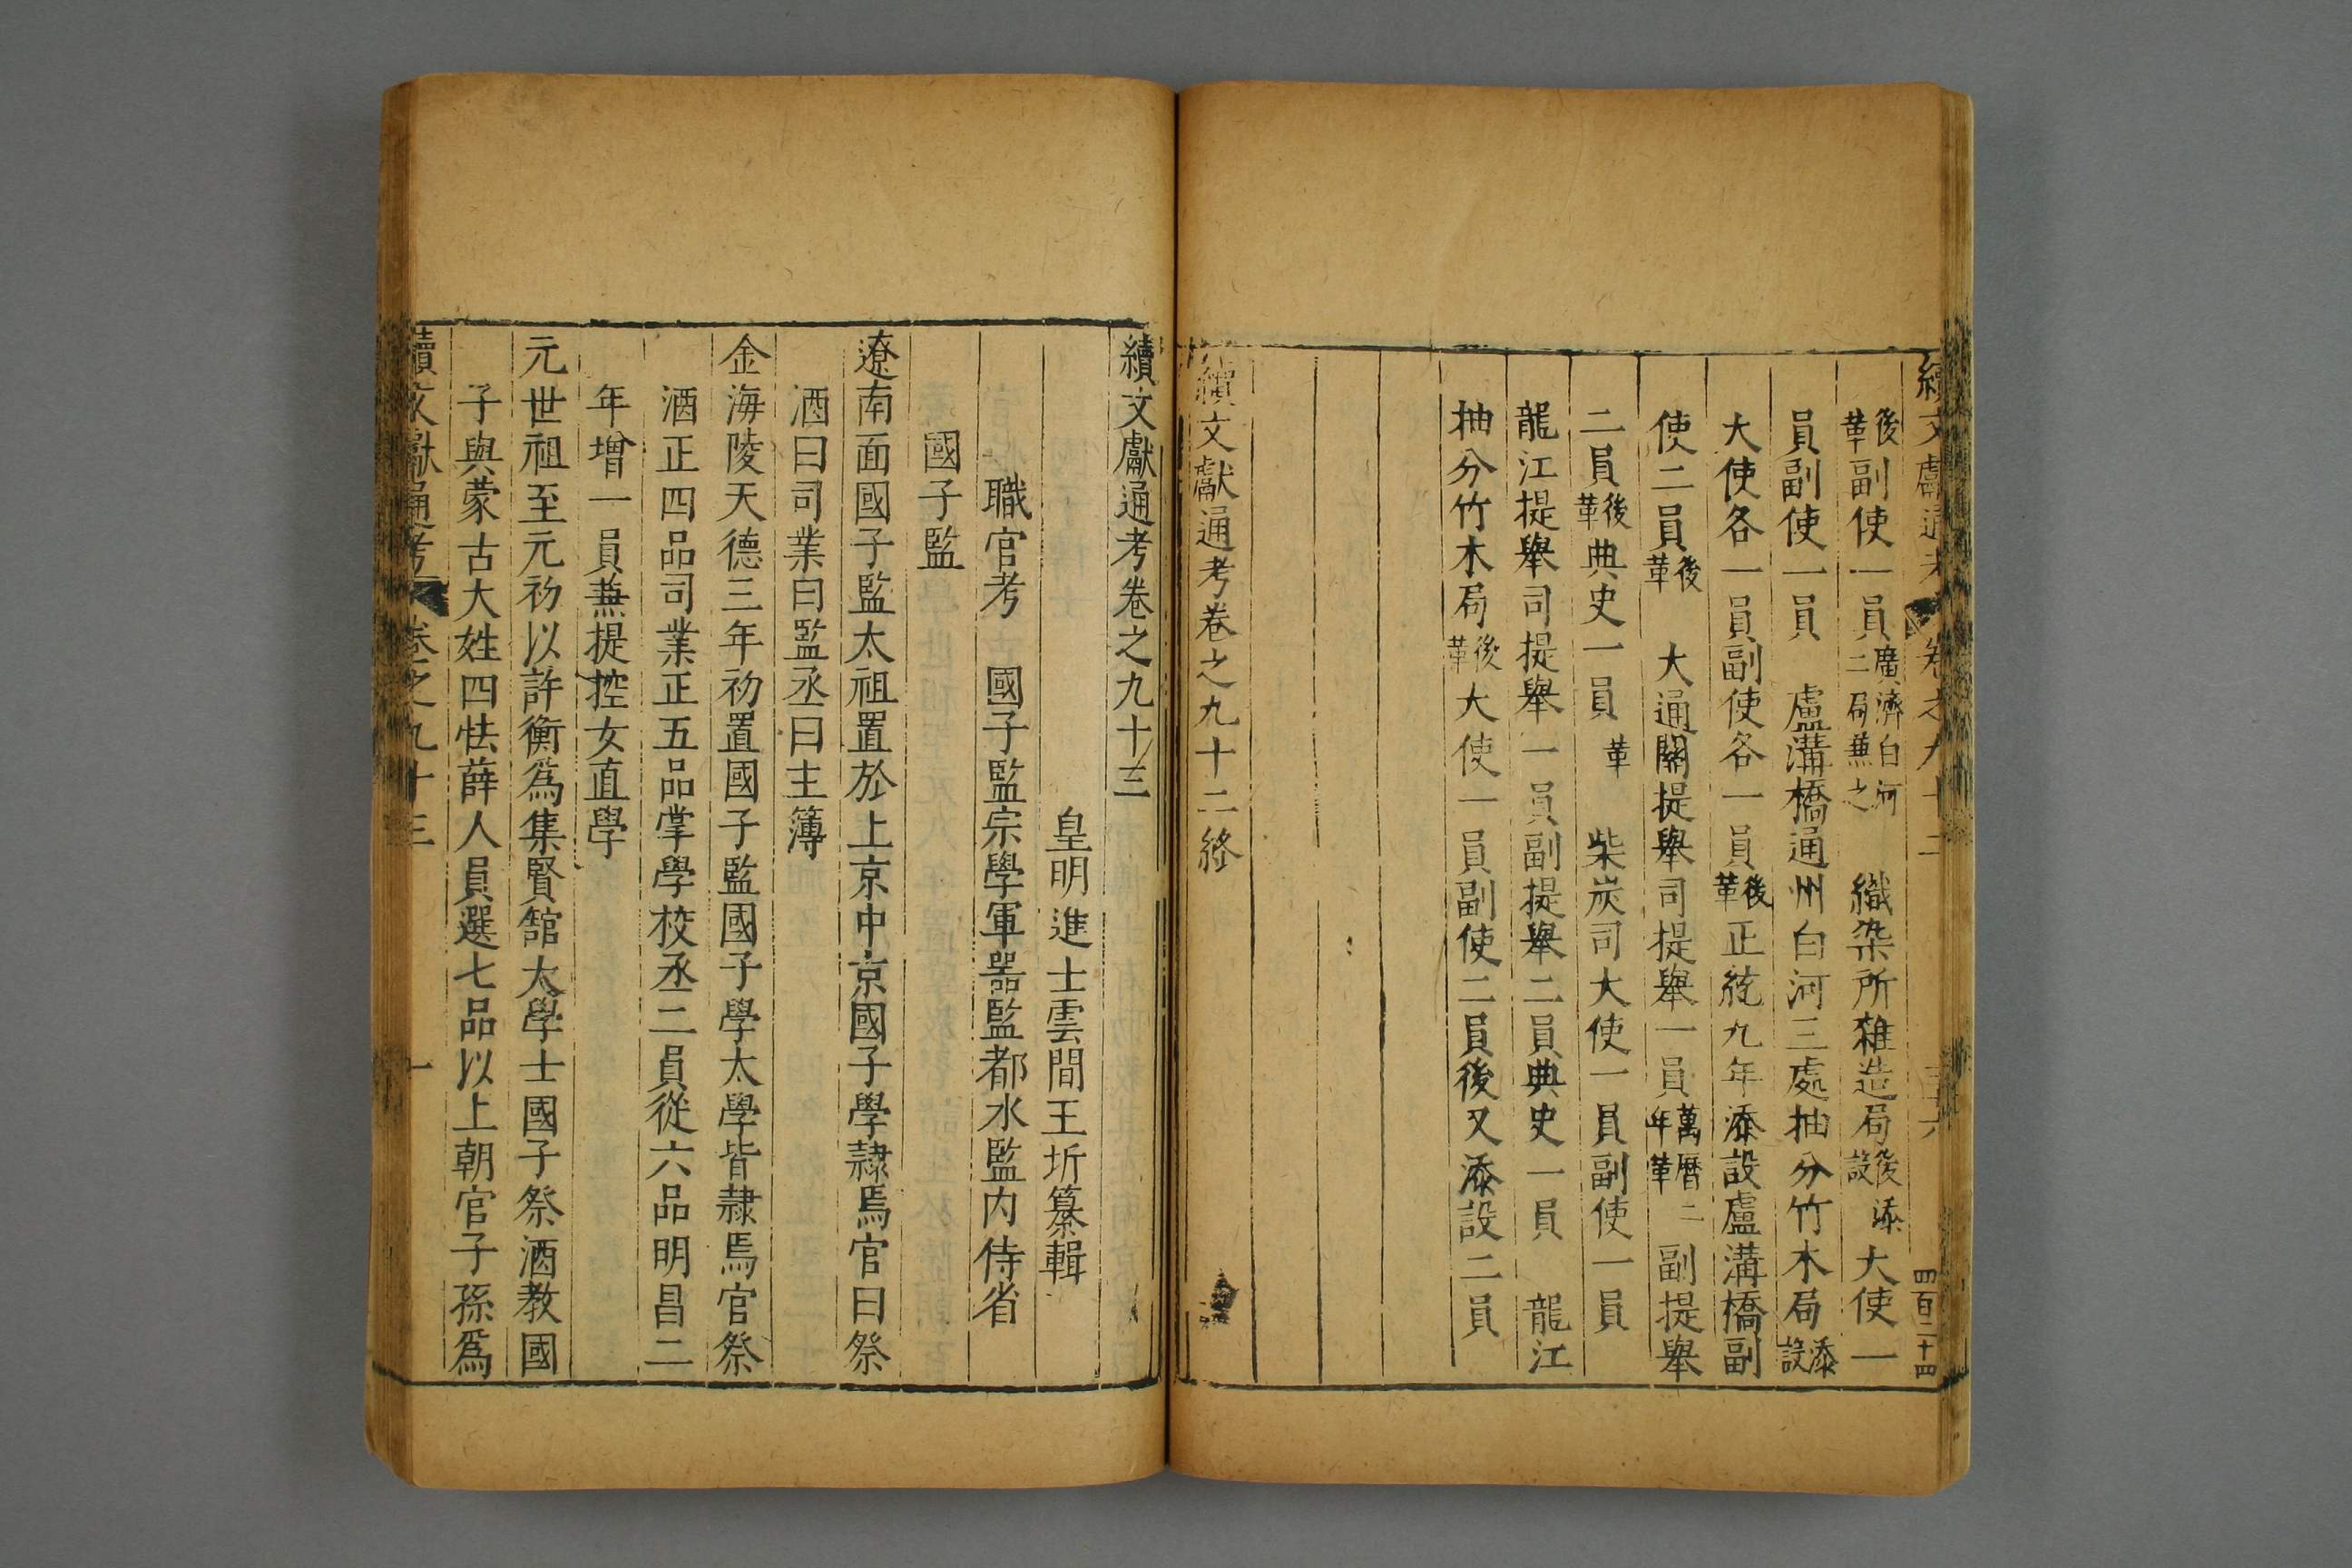 續文獻通考 卷之九十二 三十六 四百二十四
後革副使一員廣濟白河二局兼之 織染所雜造局後添設大使一
員副使一員 盧溝橋通州白河三處抽分竹木局添設
大使各一員副使各一員後革正統九年添設盧溝橋副
使二員後革 大通關提舉司提舉一員萬曆二年革副提舉
二員後革典史一員革 柴炭司大使一員副使一員
龍江提舉司提舉一員副提舉二員典史一員 龍江
抽分竹木局後革大使一員副使二員後又添設二員
續文獻通考卷之九十二終
續文獻通考卷之九十三
皇明進士雲間王圻纂輯
職官考 國子監宗學軍器監都水監内侍省
國子監
遼南面國子監太祖置於上京中京國子學隸焉官曰祭
酒曰司業曰監丞曰主簿
金海陵天德三年初置國子監國子學太學皆隸焉官祭
酒正四品司業正五品掌學校丞二員從六品明昌二
年增一員兼提控女直學
元世祖至元初以許衡爲集賢館大學士國子祭酒教國
子與蒙古大姓四怯薛人員選七品以上朝官子孫爲
續文獻通考 卷之九十三 一